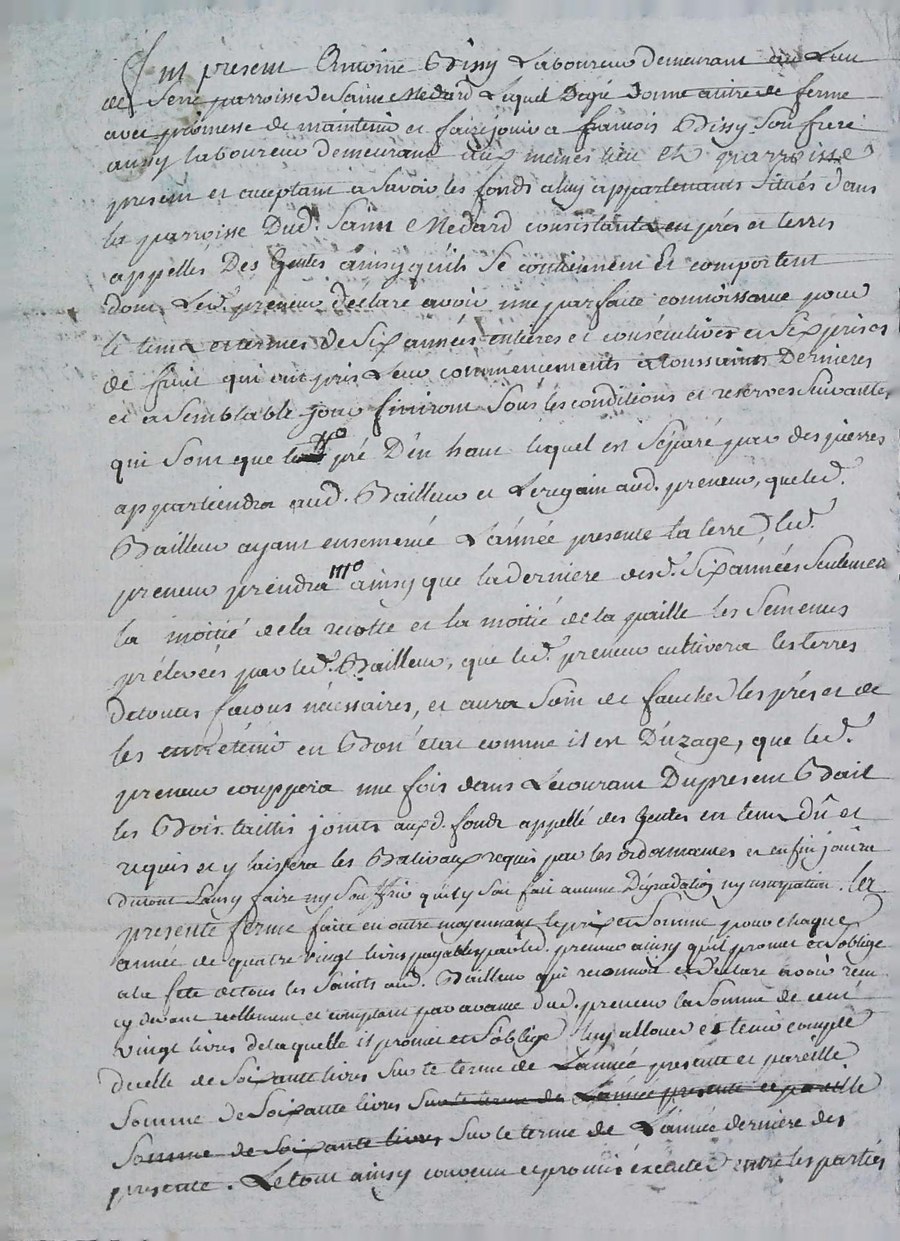 Fut present Antoine Bissy Laboureur demeurant au Lieu
de Serre parroisse de Saint Medard Lequel De gré donne a titre de ferme
avec promesse de maintenir et faire jouir a francois Bissy Son frere
aussy laboureur demeurant aux memes lieu et parroisse
present et acceptant a Savoir les fonds a luy appartenants Situés dans
la parroisse Dud. Saint Medard consistants en prés et terres
appellés Des Goutes ainsy qu'ils Se contiennent Et comportent
dont Led. preneur déclare avoir une parfaite connoissance pour
le tems et termes de Six années entieres et consécutives et Six prises
de fruit qui ont pris Leur commencements a toussaints Dernieres
et a Semblable jour finiront Sous les conditions et reserves Suivantes
qui Sont que le pré D'en haut lequel est Séparé par des pierres
appartiendra aud. Bailleur et Le regain aud. preneur, que led.
Bailleur ayant ensemencé L'année presente la terre led.
preneur prendra ainsy que la derniere desd. Six années Seulement
la moitié de la recolte et la moitié de la paille les Semences
prélevées par led. Bailleur, que led. preneur cultivera les terres
de toutes facons nécessaires, et aura Soin de faucher les prés et de
les entretenir en Bon état comme il est D'uzage, que led.
preneur couppera une fois dans Le courant Du present Bail
les Bois taillis joints auxd. fonds appellé des Goutes en tems dû et
requis et y laissera les Baliveaux requis par les ordonnances et enfin jouira
du tout Sans y faire ny Souffrir qu'il y Soit fait aucune Dégradation ny usurpation. la
presente ferme faite en outre moyennant le prix et Somme pour chaque
année de quatre vingt livres payables par led. preneur ainsy qu'il promet et S'oblige
a la fête de tous les Saints aud. Bailleur qui reconnoit et déclare avoir reçu
cy devant réellement et comptant par avance dud. preneur la Somme de cent
vingt livres de laquelle il promet et S'oblige luy allouer et tenir compte
d'icelle de Soixante livres Sur le terme de L'année presente et pareille
Somme de Soixante livres Sur le terme de L'année presente et pareille
Somme de Soixante livres Sur le terme de L'année derniere des
presente. Le tout ainsy convenu et promis exécuter entre les parties